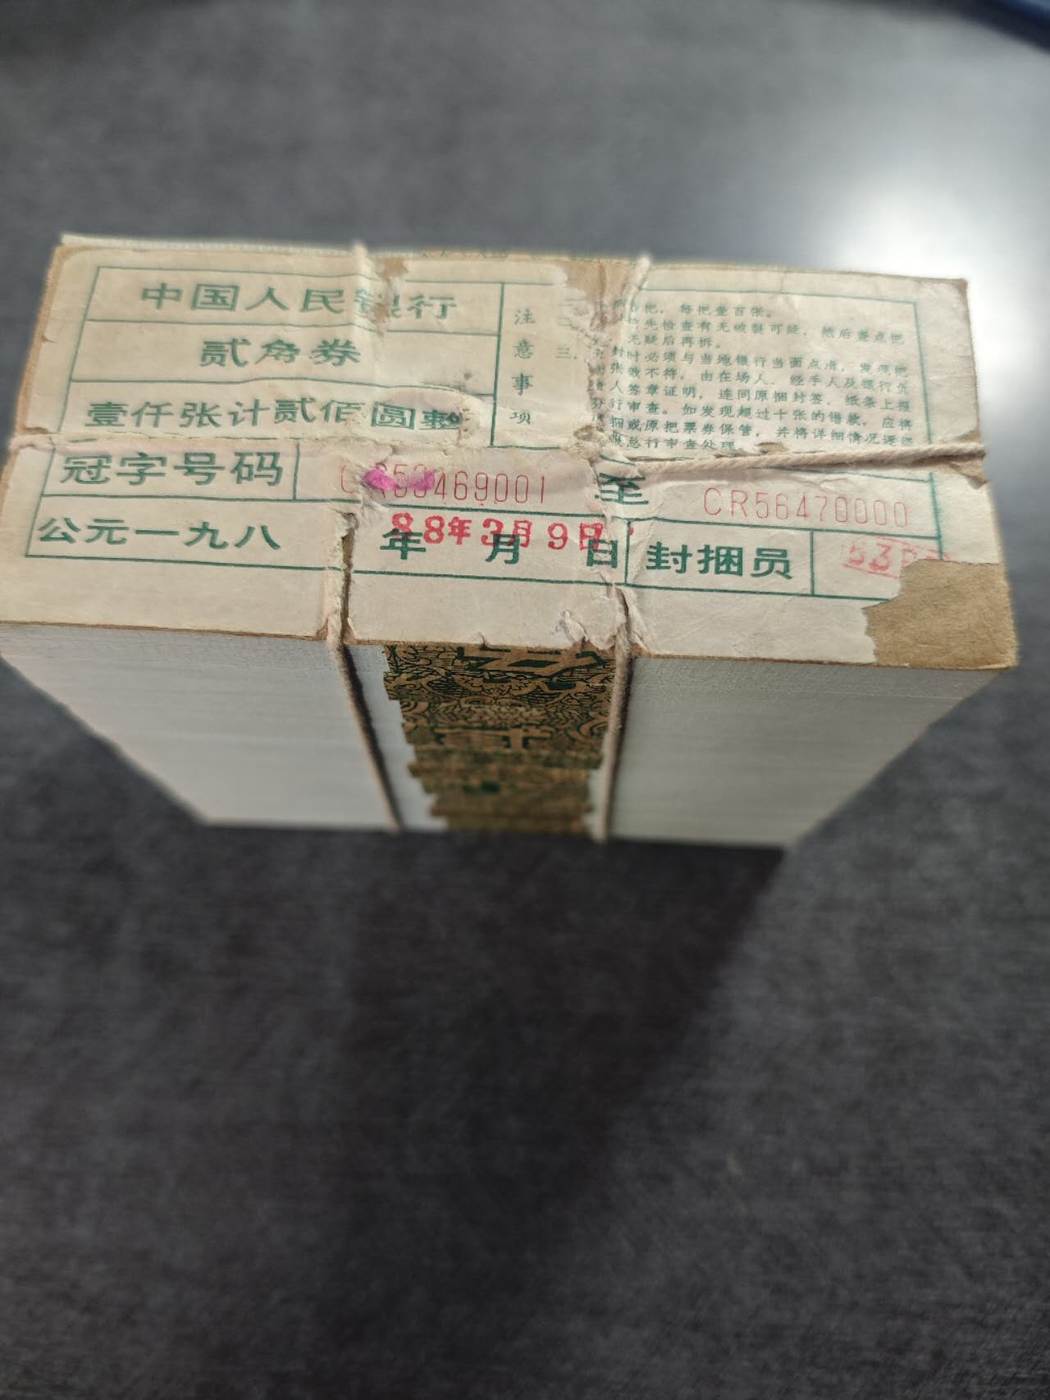 中国人民银行
贰角券
壹仟张计贰佰圆整
注意事项
三、
把，每把壹百张。
先检查有无破裂可疑，然后差点把
无疑后再拆。
时必须与当地银行当面点清，
张数不符，由在场人、经手人及银行负
人签章证明，连同原捆封签，纸条上报
行审查。如发现超过十张的错款，应将
捆或原把票券保管，并将详细情况
总行审查处理。
冠字号码
469001
至
CR56470000
公元一九八 年 月 日
88年3月9日
封捆员
53